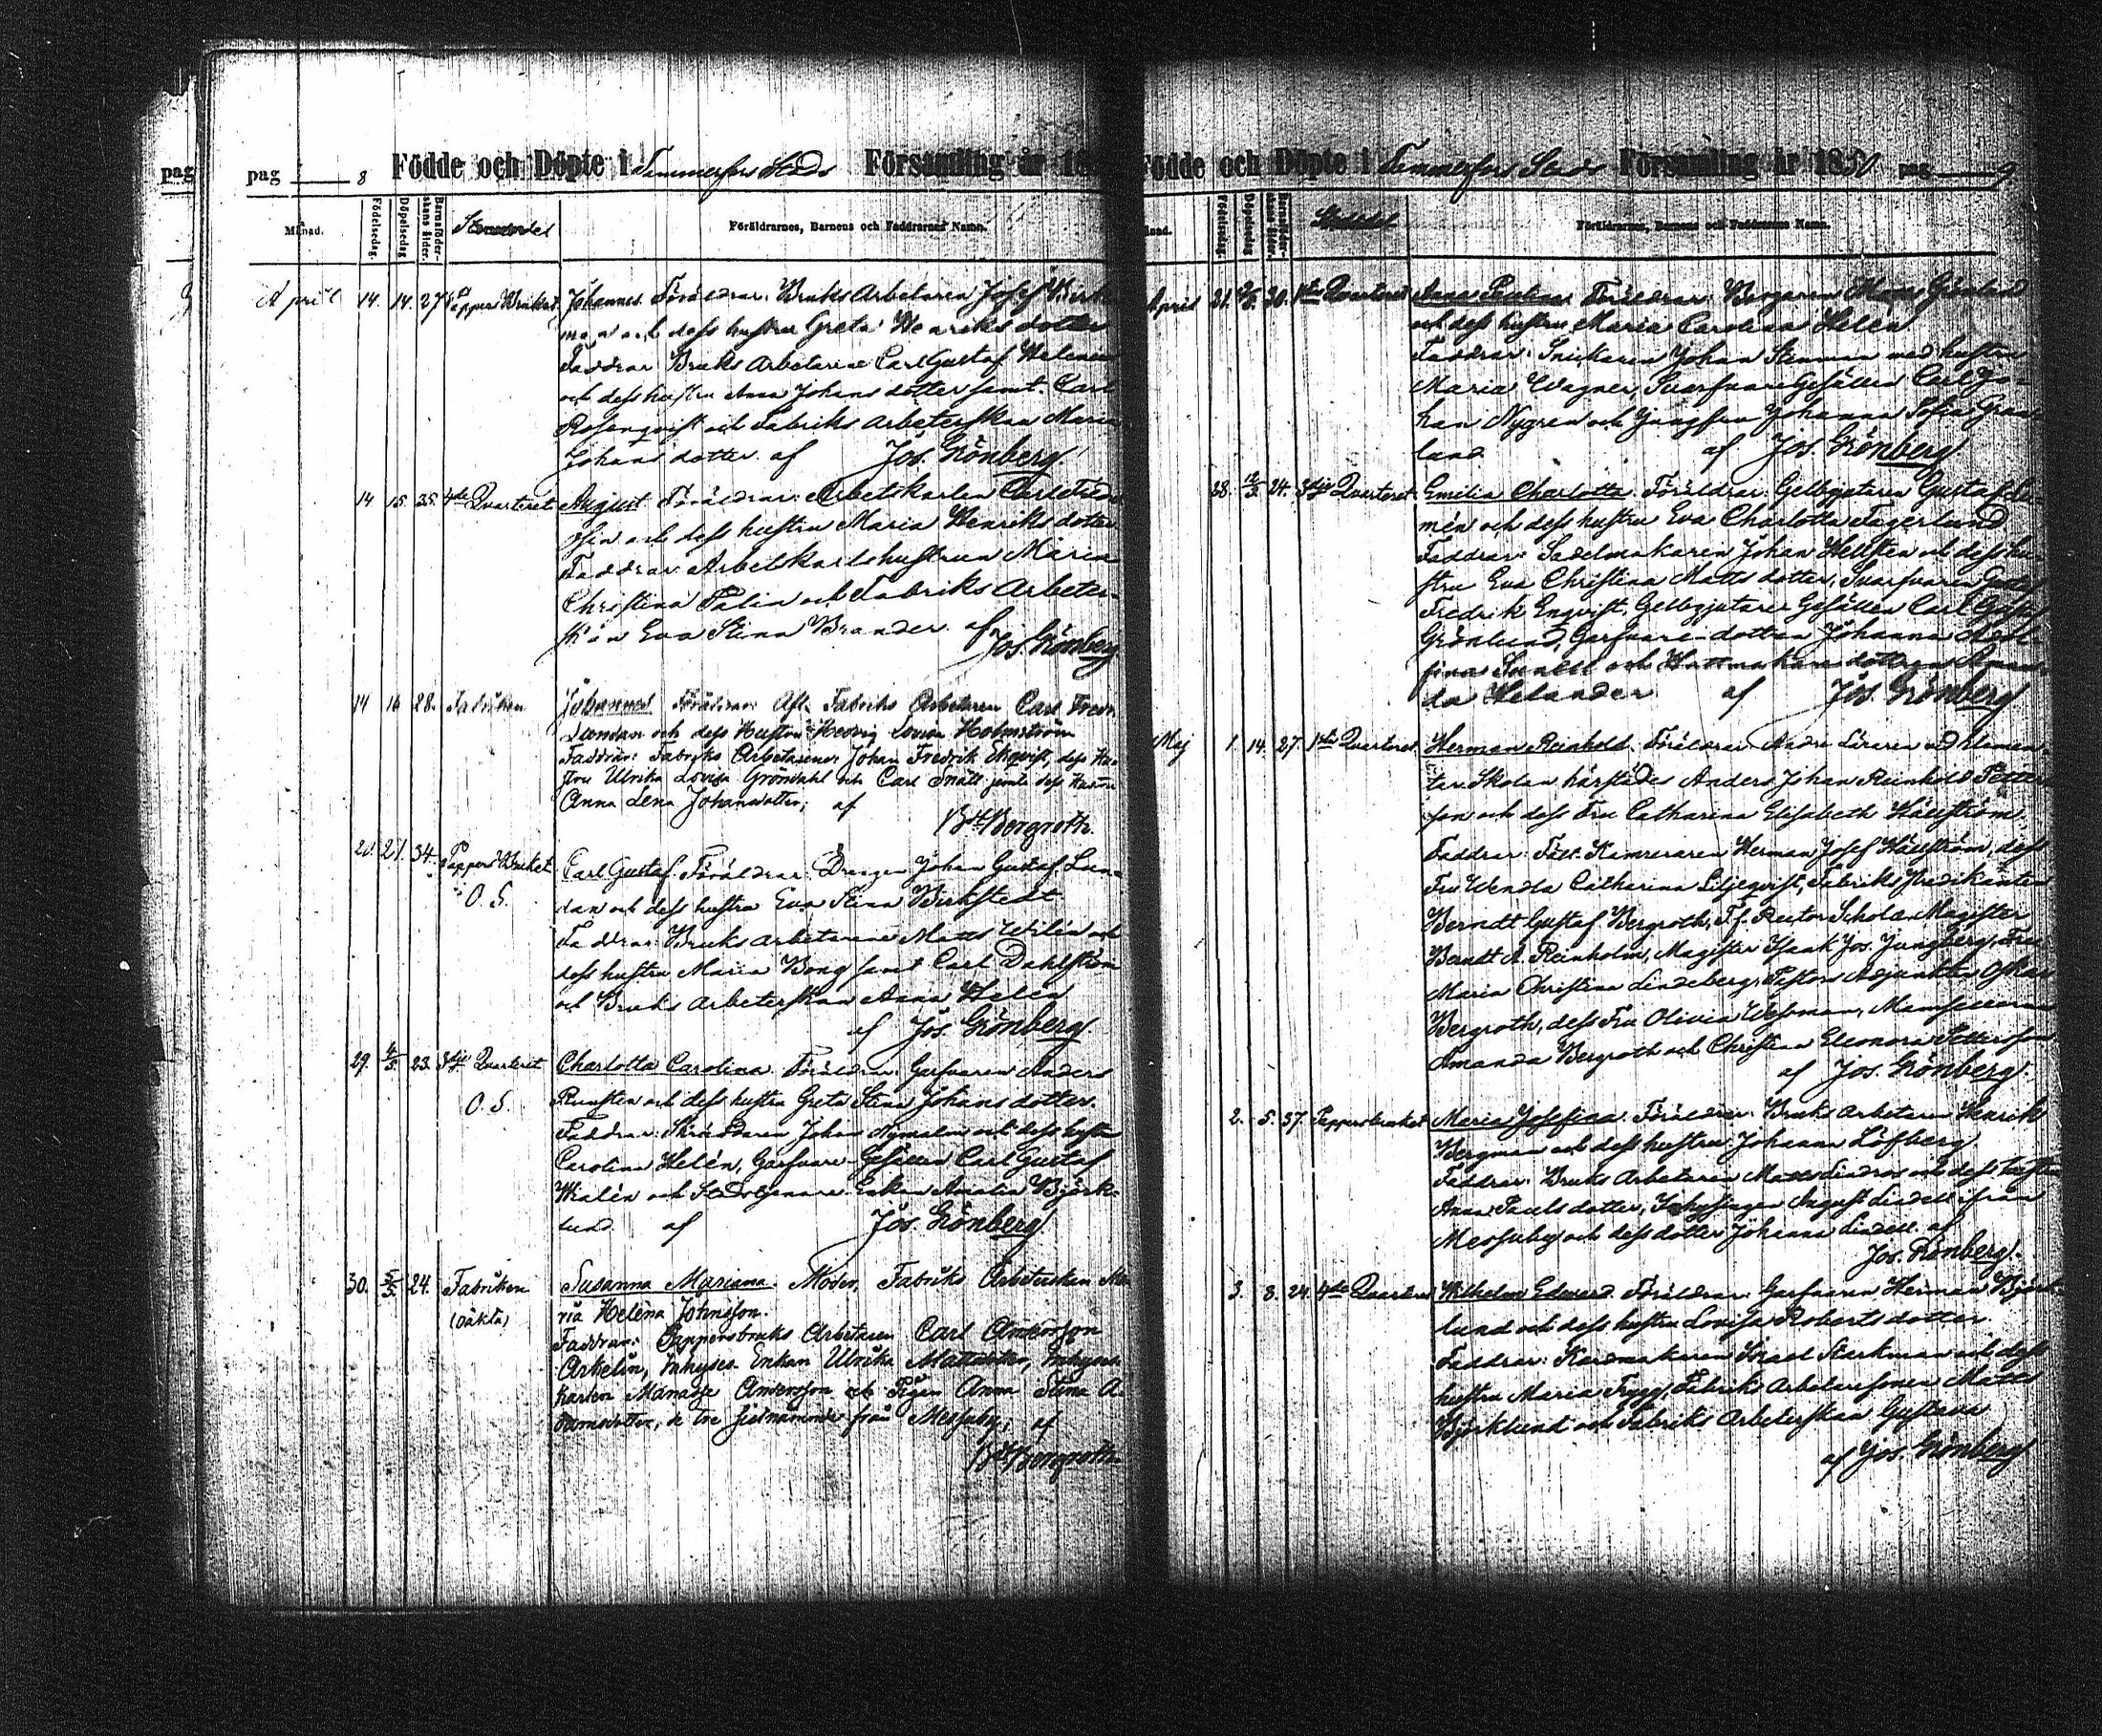 pag
pag 8 Födde och Döpte i Tammerfors Stads Församling år 18
Månad. Födelsedag. Döpelsedag Barnaföderskans ålder. Föräldrarnes, Barnens och Faddrarnes Namn.
April 14. 14. 27 Pappers Bruket Johannes. Föräldrar: Bruks Arbetaren Josef Birk
man och dess hustru Greta Henriks dotter
Faddrar: Bruks Arbetarene Carl Gustaf Helenius
och dess hustru Anna Johans dotter samt Carl
Rosenqvist och Fabriks Arbeterskan Maria
Johans dotter. af Jos. Grönberg.
14 15. 35. 4de Qvarteret August. Föräldrar: Arbetskarlen Carl
och dess hustru Maria Henriks dotter
Faddrar: Arbetskarls hustrun Maria
Christina Palin och Fabriks Arbeter-
skan Eva Stina Brander. af
Jos. Grönberg
14 16 28. Fabriken Johannes. Föräldrar: Afl. Fabriks Arbetaren Carl Fredr.
Lundan och dess Hustru Hedvig Lovisa Holmström
Faddrar: Fabriks Arbetarene Johan Fredrik Ekqvist, dess Hu-
stru Ulrika Lovisa Gröndahl och Carl Snäll jemte dess Hustru
Anna Lena Johansdotter; af
Bt Bergroth.
21. 21. 34. Pappers Bruket Carl Gustaf. Föräldrar: Drängen Johan Gustaf Lun-
O. S. dan och dess hustru Eva Stina Birkstedt
Faddrar: Bruks Arbetarene Matts Wilén och
dess hustru Maria Bong samt Carl Dahlström
och Bruks Arbeterskan Anna Helén
af Jos. Grönberg.
29. 4/5. 23. 3dje Qvarteret Charlotta Carolina. Föräldrar: Garfvaren Anders
O. S. Runsten och dess hustru Greta Stina Johans dotter.
Faddrar: Skräddaren Johan Nymalm och dess hustru
Carolina Helén, Garfvare-Gesällen Carl Gustaf
Wialén och Stadstjenare Enkan Amalia Björk-
lund. af Jos. Grönberg.
30. 5/5. 24. Fabriken Susanna Mariana. Moder, Fabriks Arbeterskan Ma-
(oäkta) ria Helena Johnsson.
Faddrar: Pappersbruks Arbetaren Carl Andersson
Arkelin, Inhyses Enkan Ulrika Mattsdotter, Inhyses
karlen Manasse Andersson och Pigan Anna Stina A-
damsdotter, de tre sistnämnde från Messuby; af
Bt Bergroth.
Födde och Döpte i Tammerfors Stads Församling år 1850 pag 9.
Födelsedag. Döpelsedag Barnaföderskans ålder. Föräldrarnes, Barnens och Faddrarnes Namn.
April 21. 30. 1sta Qvarteret Anna Paulina. Föräldrar: Borgaren Grönlund
och dess hustru Maria Carolina Helén
Faddrar: Snickaren Johan Stenman med hustru
Maria Wagner, Svarfvare Gesällen Carl Jo-
han Nygren och Jungfru Johanna Sofia Grön-
lund af Jos. Grönberg.
28. 12/5. 24. 3dje Qvarteret Emilia Charlotta. Föräldrar: Gelbgjutaren Gustaf
mén och dess hustru Eva Charlotta Fagerlund
Faddrar: Sadelmakaren Johan Hellsten och dess hu-
stru Eva Christina Matts dotter, Svarfvaren Gustaf
Fredrik Enqvist, Gelbgjutare Gesällen Carl Gust.
Grönlund, Garfvare-dottren Johanna
fina Sunell och Hattmakare dottren Aman-
da Helander af Jos. Grönberg
Maj 1. 14. 27. 1sta Qvarteret Herman Reinhold. Föräldrar: Andre Läraren vid Elemen-
tar Skolan härstädes Anders Johan Reinhold Petters-
son och dess Fru Catharina Elisabeth Hällström
Faddrar: Fält-Kamreraren Herman Josef Hällström, dess
Fru Wendla Catharina Liljeqvist, Fabriks Predikanten
Berndt Gustaf Bergroth, T.f. Rector Scholae Magister
Berndt A. Reinholm, Magister Isaak Jos. Jungberg, Fru
Maria Christina Lindeberg, Pastors Adjunkten Oskar
Bergroth, dess Fru Olivia Wessman, Mamsellerna
Amanda Bergroth och Christina Eleonora Pettersson
af Jos. Grönberg.
2. 5. 37. Pappersbruket Maria Josefina. Föräldrar: Bruks Arbetaren Henrik
Bergman och dess hustru Johanna Löfberg
Faddrar: Bruks Arbetaren Matts Lindros och dess hustru
Anna Pauls dotter, Inhysingen August Lindell ifrån
Messuby och dess dotter Johanna Lindell. af
Jos. Grönberg.
3. 8. 24. 4de Qvarteret Wilhelm Edvard. Föräldrar: Garfvaren Herman Björk-
lund och dess hustru Lovisa Roberts dotter.
Faddrar: Kardmakaren Israel Starkman och dess
hustru Maria Trygg, Fabriks Arbetaresonen Matts
Björklund och Fabriks Arbeterskan Gustava
af Jos. Grönberg